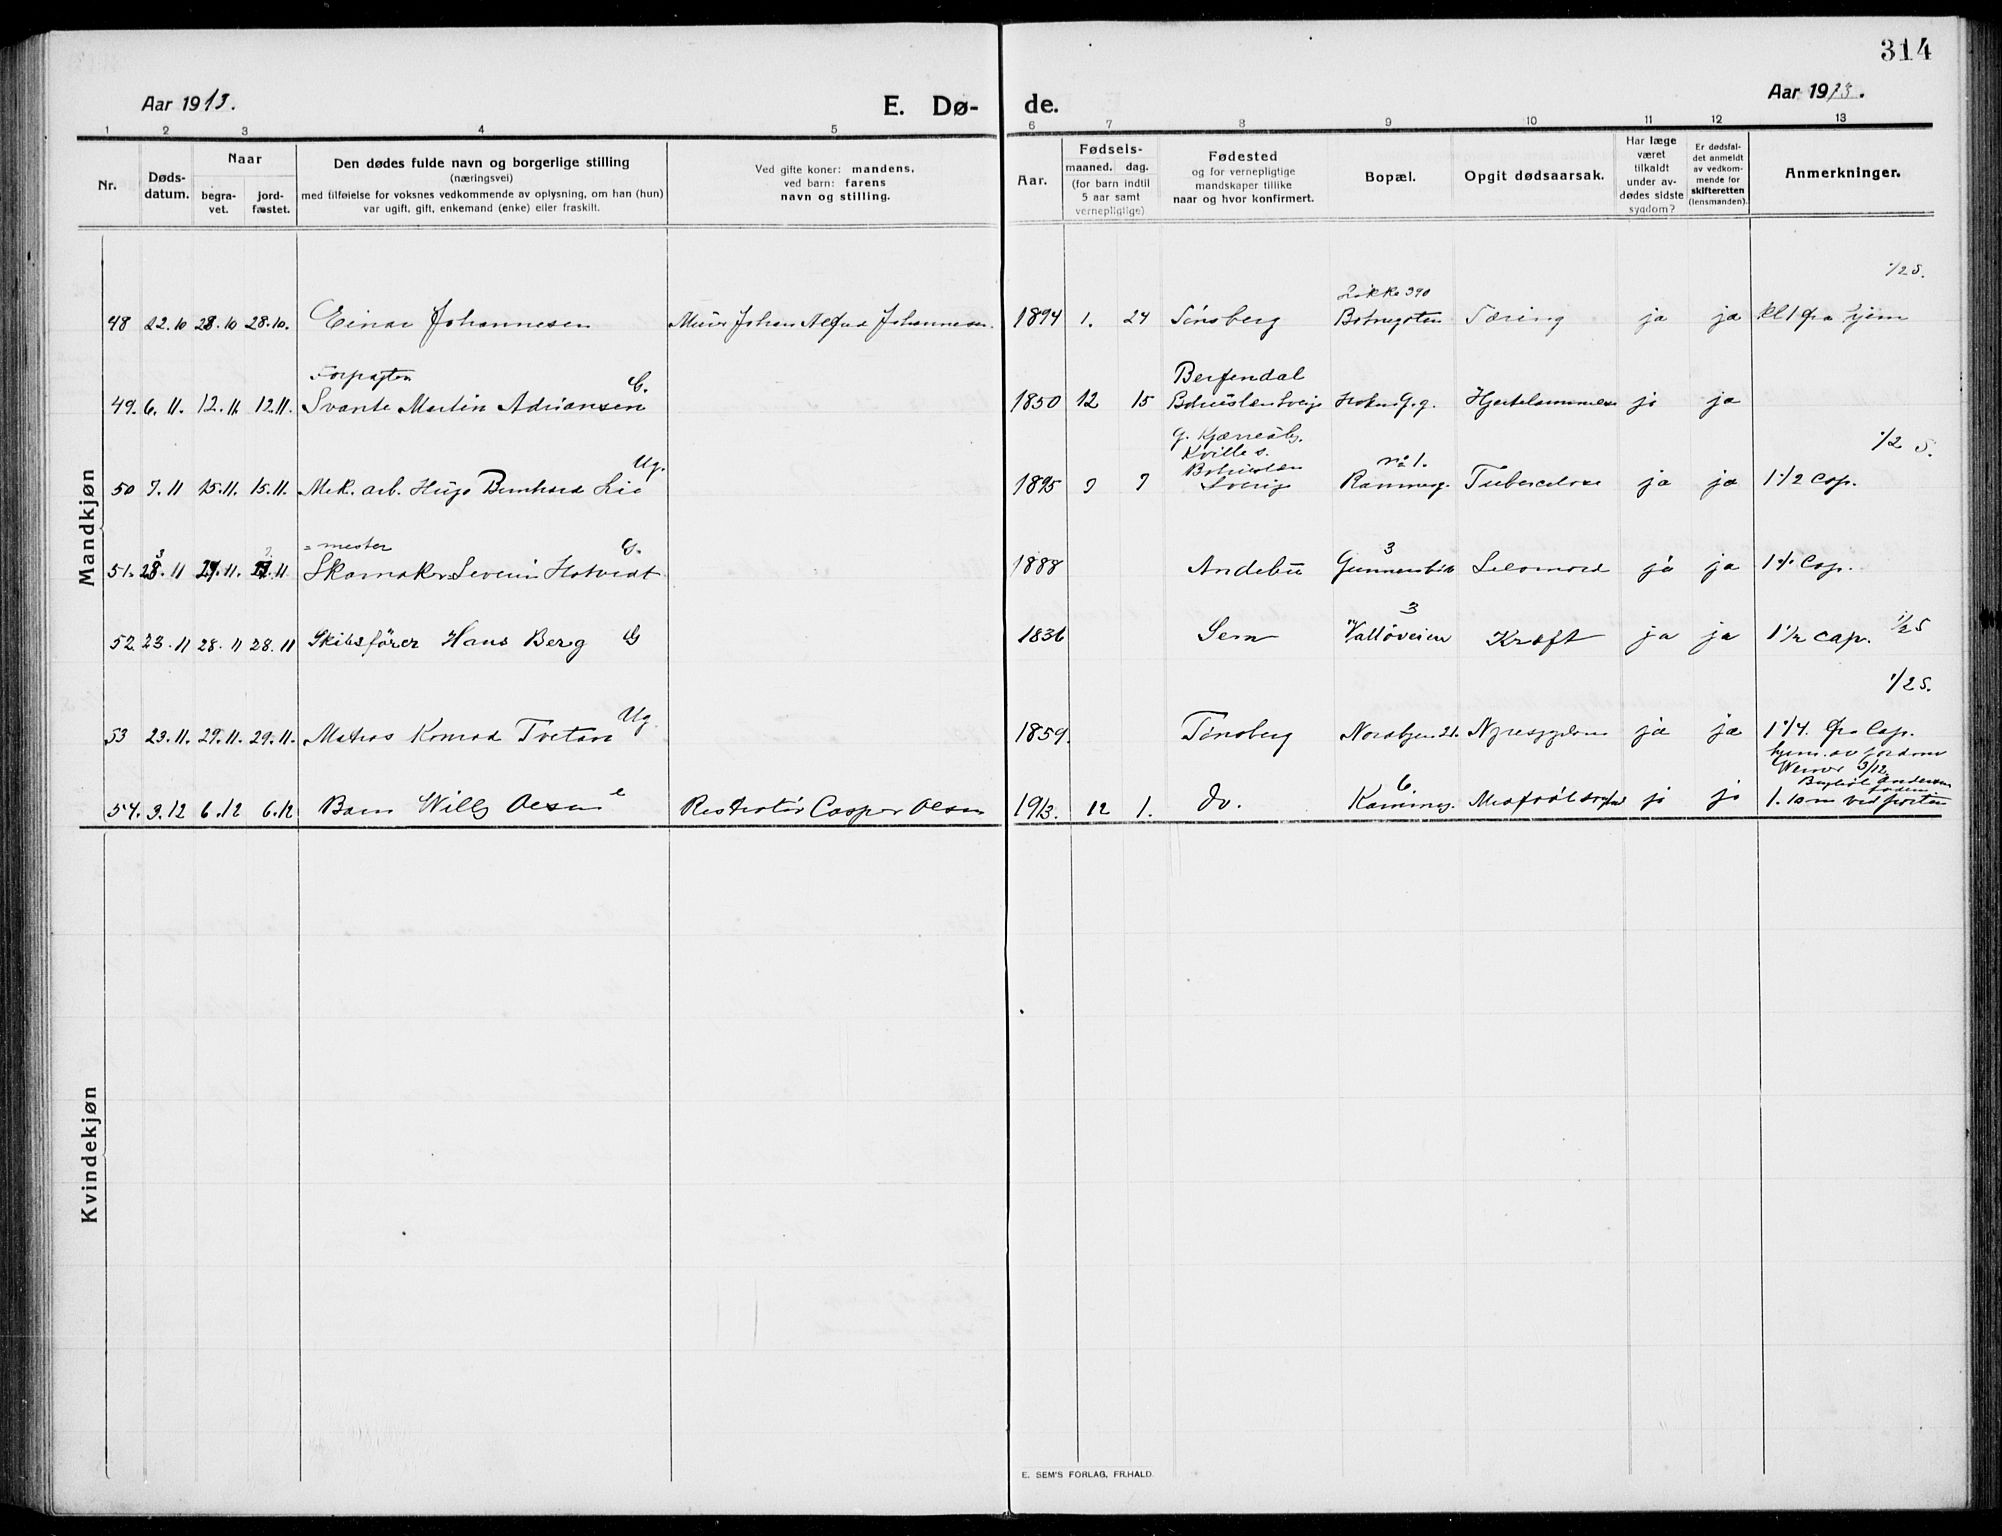 314
Aar 1913.
E. Dø-
de.
Aar 1913.
1 2 3 4 5 6 7 8 9 10 11 12 13
Nr.
Døds-
datum.
Naar
begra-
vet.
jord-
fæstet.
Den dødes fulde navn og borgerlige stilling
(næringsvei)
med tilføielse for voksnes vedkommende av oplysning, om han (hun)
var ugift, gift, enkemand (enke) eller fraskilt.
Ved gifte koner: mandens,
ved barn: farens
navn og stilling.
Aar.
Fødsels-
maaned. dag.
(for barn indtil
5 aar samt
vernepligtige)
Fødested
og for vernepligtige
mandskaper tillike
naar og hvor konfirmert.
Bopæl.
Opgit dødsaarsak.
Har læge
været
tilkaldt
under av-
dødes sidste
sygdom?
Er dødsfal-
det anmeldt
av vedkom-
mende for
skifteretten
(lensmanden).
Anmerkninger.
Mandkjøn
1/2 S.
48 22.10 28.10 28.10. Einar Johannesen Murer Johan Alfred Johannesen. 1894 1. 24 Tønsberg Løkke 390 Tæring ja ja kl 1 fra hjem
Forpagter
49. 6.11. 12.11. 12.11. Svante Martin Adriansen G. 1850 12 15 Berfendal Bohuslen Sverige ja ja
1/2 S.
50 7.11 15.11. 15.11. Mek. arb. Hugo Bernhard Lie Ug. 1895 9 7 Kville s. Bohuslen Sverige no 1. Rammeg. Tuberculose ja ja 1 1/2 Cap.
= mester
51. 23.11 27.11. 27.11 Skomaker Severin Hotvedt G. 1888 Andebu 3 Selvmord ja ja 1 Cap.
52. 23.11 28.11 28.11 Skibsfører Hans Berg G 1836 Sem 3 Valløveien Kræft ja ja 1 1/2 Cap. 1/2 S
1/2 S.
53 23.11. 29.11. 29.11. Matros Konrad Tvetan Ug. 1859. Tønsberg Nordbyen 21. Nyresygdom ja ja 1 1/4. fra Cap.
54. 3.12 6.12 6.12 Barn Willy Olsen e Casper Olsen 1913. 12 1. do. 6. ja ja 1. 10 m ved porten
Kvindekjøn
E. SEM'S FORLAG, FR.HALD.